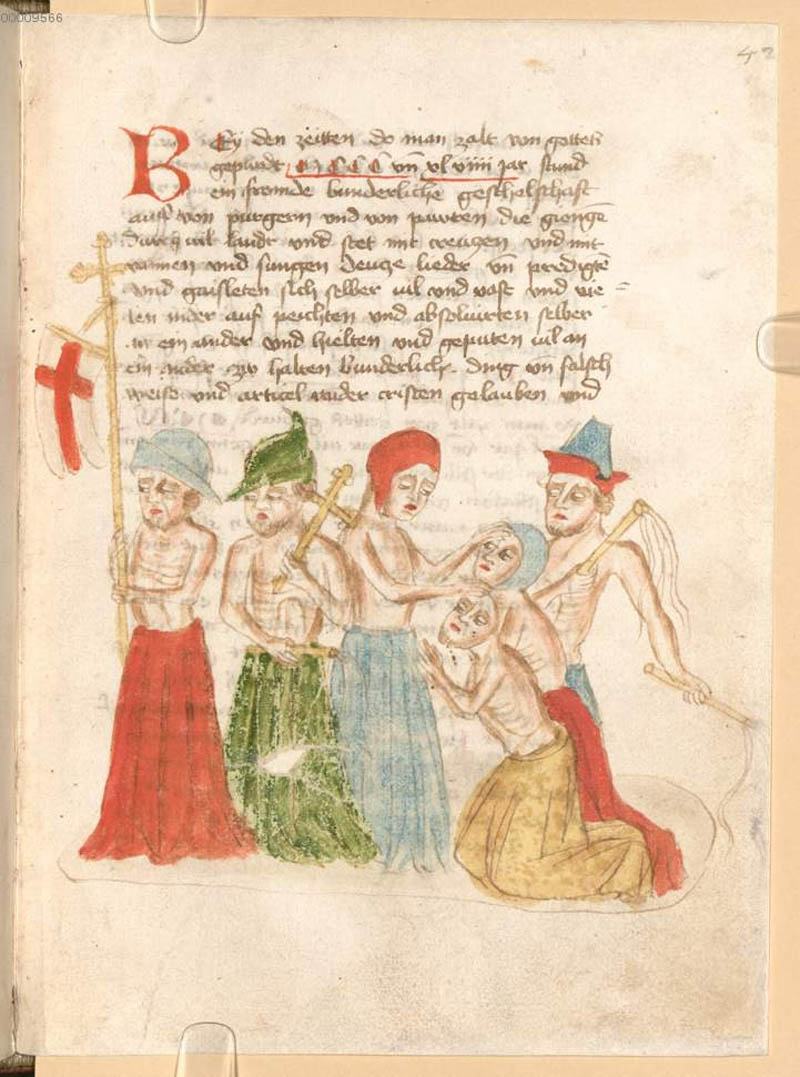 00009566
42
BEy den zeitten do man zalt von gottes
gepurdt MCCC vn xl viiii jar stund
ein fromde bunderliche geschelschaft
auf von purgern vnd von pawren die gienge
durch vil landt vnd stet mit creuczen vnd mit
vanen vnd sungen deucze lieder vn predigte
vnd gaisleten sich selber vil vnd vast vnd vie
len nider auf peichten vnd absoluirten selber
an ein ander vnd hielten vnd geputen vil an
ein ander zw halten bunderlich ding von falsch
weise vnd articel wider cristen gelauben vnd